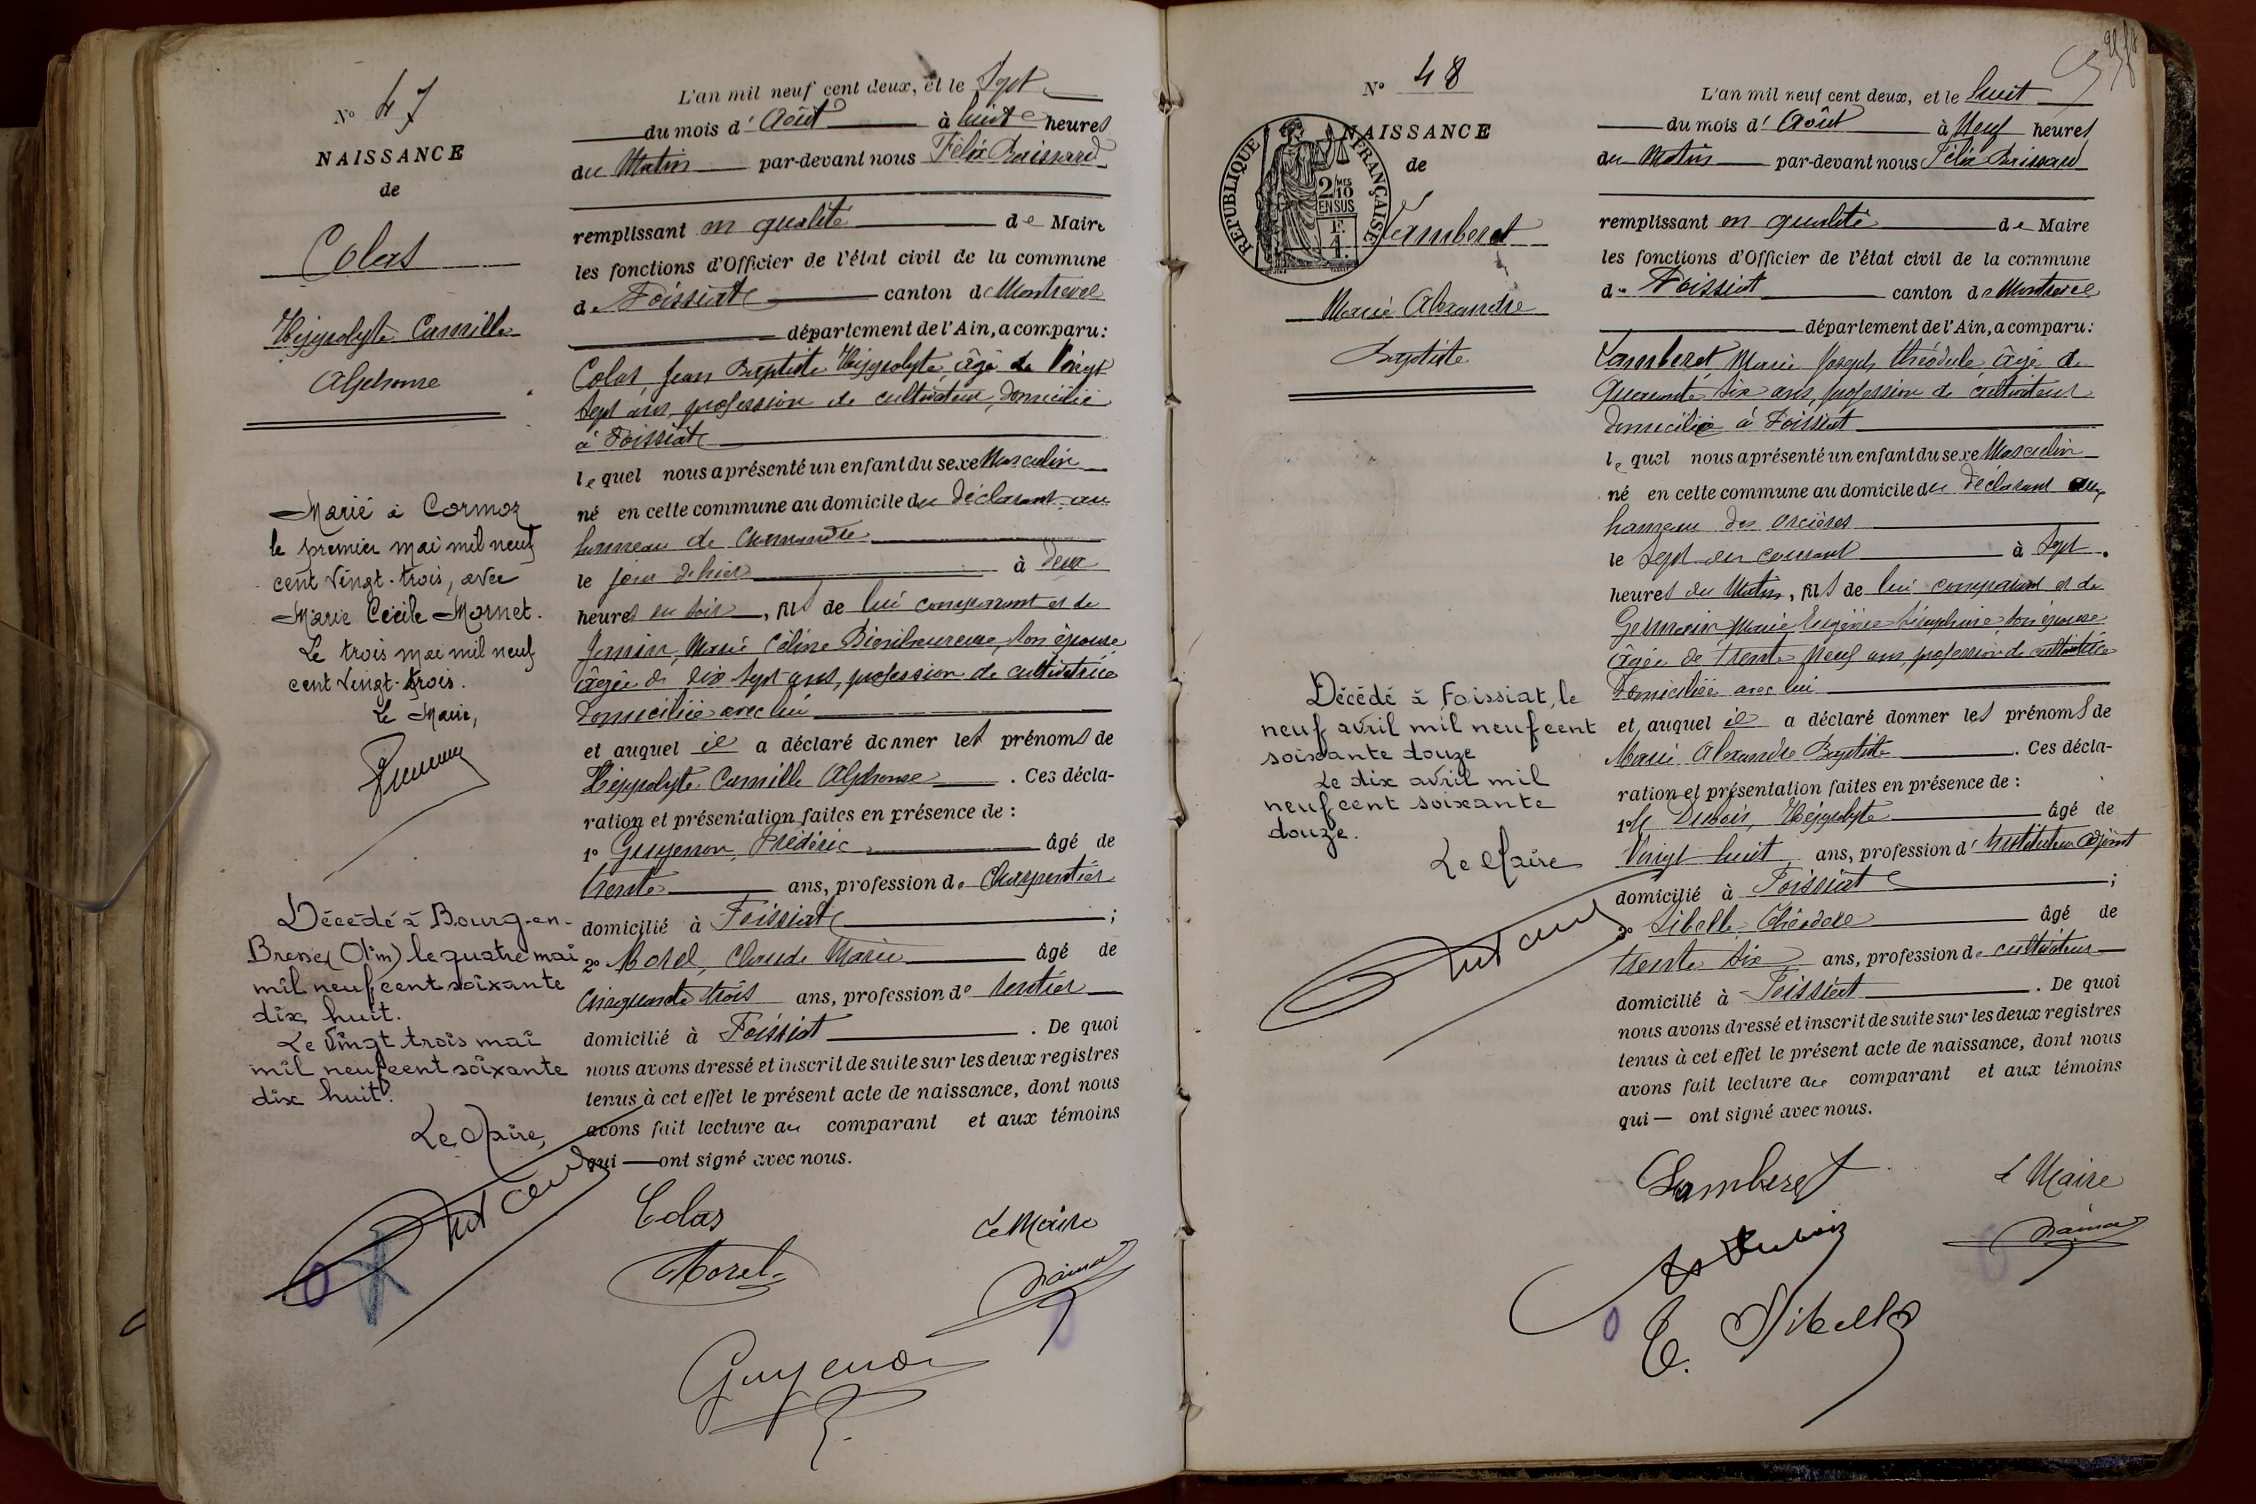 N° 47
NAISSANCE
de
Colas
Hippolyte Camille
Alphonse
Marié à Cormoz
le premier mai mil neuf
cent vingt-trois, avec
Marie Cécile Mornet.
Le trois mai mil neuf
cent vingt-trois.
Le Maire,
Décédé à Bourg-en-
Bresse (Ain) le quatre mai
mil neuf cent soixante
dix huit.
Le vingt trois mai
mil neuf cent soixante
dix huit.
Le Maire,
L'an mil neuf cent deux, et le sept
du mois d'Août à huit heures
du Matin par-devant nous Félix
remplissant en qualité de Maire
les fonctions d'Officier de l'état civil de la commune
de Foissiat canton de Montrevel
département de l'Ain, a comparu:
Colas Jean Baptiste Hippolyte âgé de vingt
sept ans, profession de cultivateur, domicilié
à Foissiat
lequel nous a présenté un enfant du sexe Masculin
né en cette commune au domicile du déclarant au
hameau de
le jour d'hier à deux
heures du soir, fils de lui comparant et de
Marie Céline Bienheureuse, son épouse
âgée de dix sept ans, profession de cultivatrice
domiciliée avec lui
et auquel il a déclaré donner les prénoms de
Hippolyte Camille Alphonse. Ces décla-
ration et présentation faites en présence de:
1° Guyenon, Frédéric âgé de
trente ans, profession de Charpentier
domicilié à Foissiat;
2° Morel, Claude Marie âgé de
cinquante trois ans, profession de rentier
domicilié à Foissiat. De quoi
nous avons dressé et inscrit de suite sur les deux registres
tenus à cet effet le présent acte de naissance, dont nous
avons fait lecture au comparant et aux témoins
qui — ont signé avec nous.
Colas
Le Maire
Morel
Guyenon
N° 48
NAISSANCE
de
RÉPUBLIQUE FRANÇAISE
2/10 MES
EN SUS
1 F.
Lamberet
Marie Alexandre
Baptiste
Décédé à Foissiat, le
neuf avril mil neuf cent
soixante douze
Le dix avril mil
neuf cent soixante
douze.
Le Maire
L'an mil neuf cent deux, et le huit
du mois d'Août à Neuf heures
du Matin par-devant nous Félix
remplissant en qualité de Maire
les fonctions d'Officier de l'état civil de la commune
de Foissiat canton de Montrevel
département de l'Ain, a comparu:
Lamberet Marie Joseph Théodule âgé de
quarante six ans, profession de cultivateur
domicilié à Foissiat
lequel nous a présenté un enfant du sexe Masculin
né en cette commune au domicile du déclarant au
hameau des Orcières
le sept du courant à sept
heures du Matin, fils de lui comparant et de
Marie Eugénie Séraphine son épouse
âgée de trente neuf ans profession de cultivatrice
domiciliée avec lui
et auquel il a déclaré donner les prénoms de
Marie Alexandre Baptiste. Ces décla-
ration et présentation faites en présence de:
1° Dubois, Hippolyte âgé de
vingt huit ans, profession d'Instituteur adjoint
domicilié à Foissiat;
2° Sibelle Théodore âgé de
trente six ans, profession de cultivateur
domicilié à Foissiat. De quoi
nous avons dressé et inscrit de suite sur les deux registres
tenus à cet effet le présent acte de naissance, dont nous
avons fait lecture au comparant et aux témoins
qui — ont signé avec nous.
Lamberet
Le Maire
Dubois
T. Sibelle